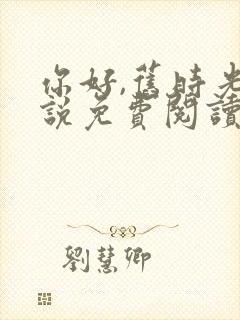 你好,舊時光
說免費閱讀
劉慧卿